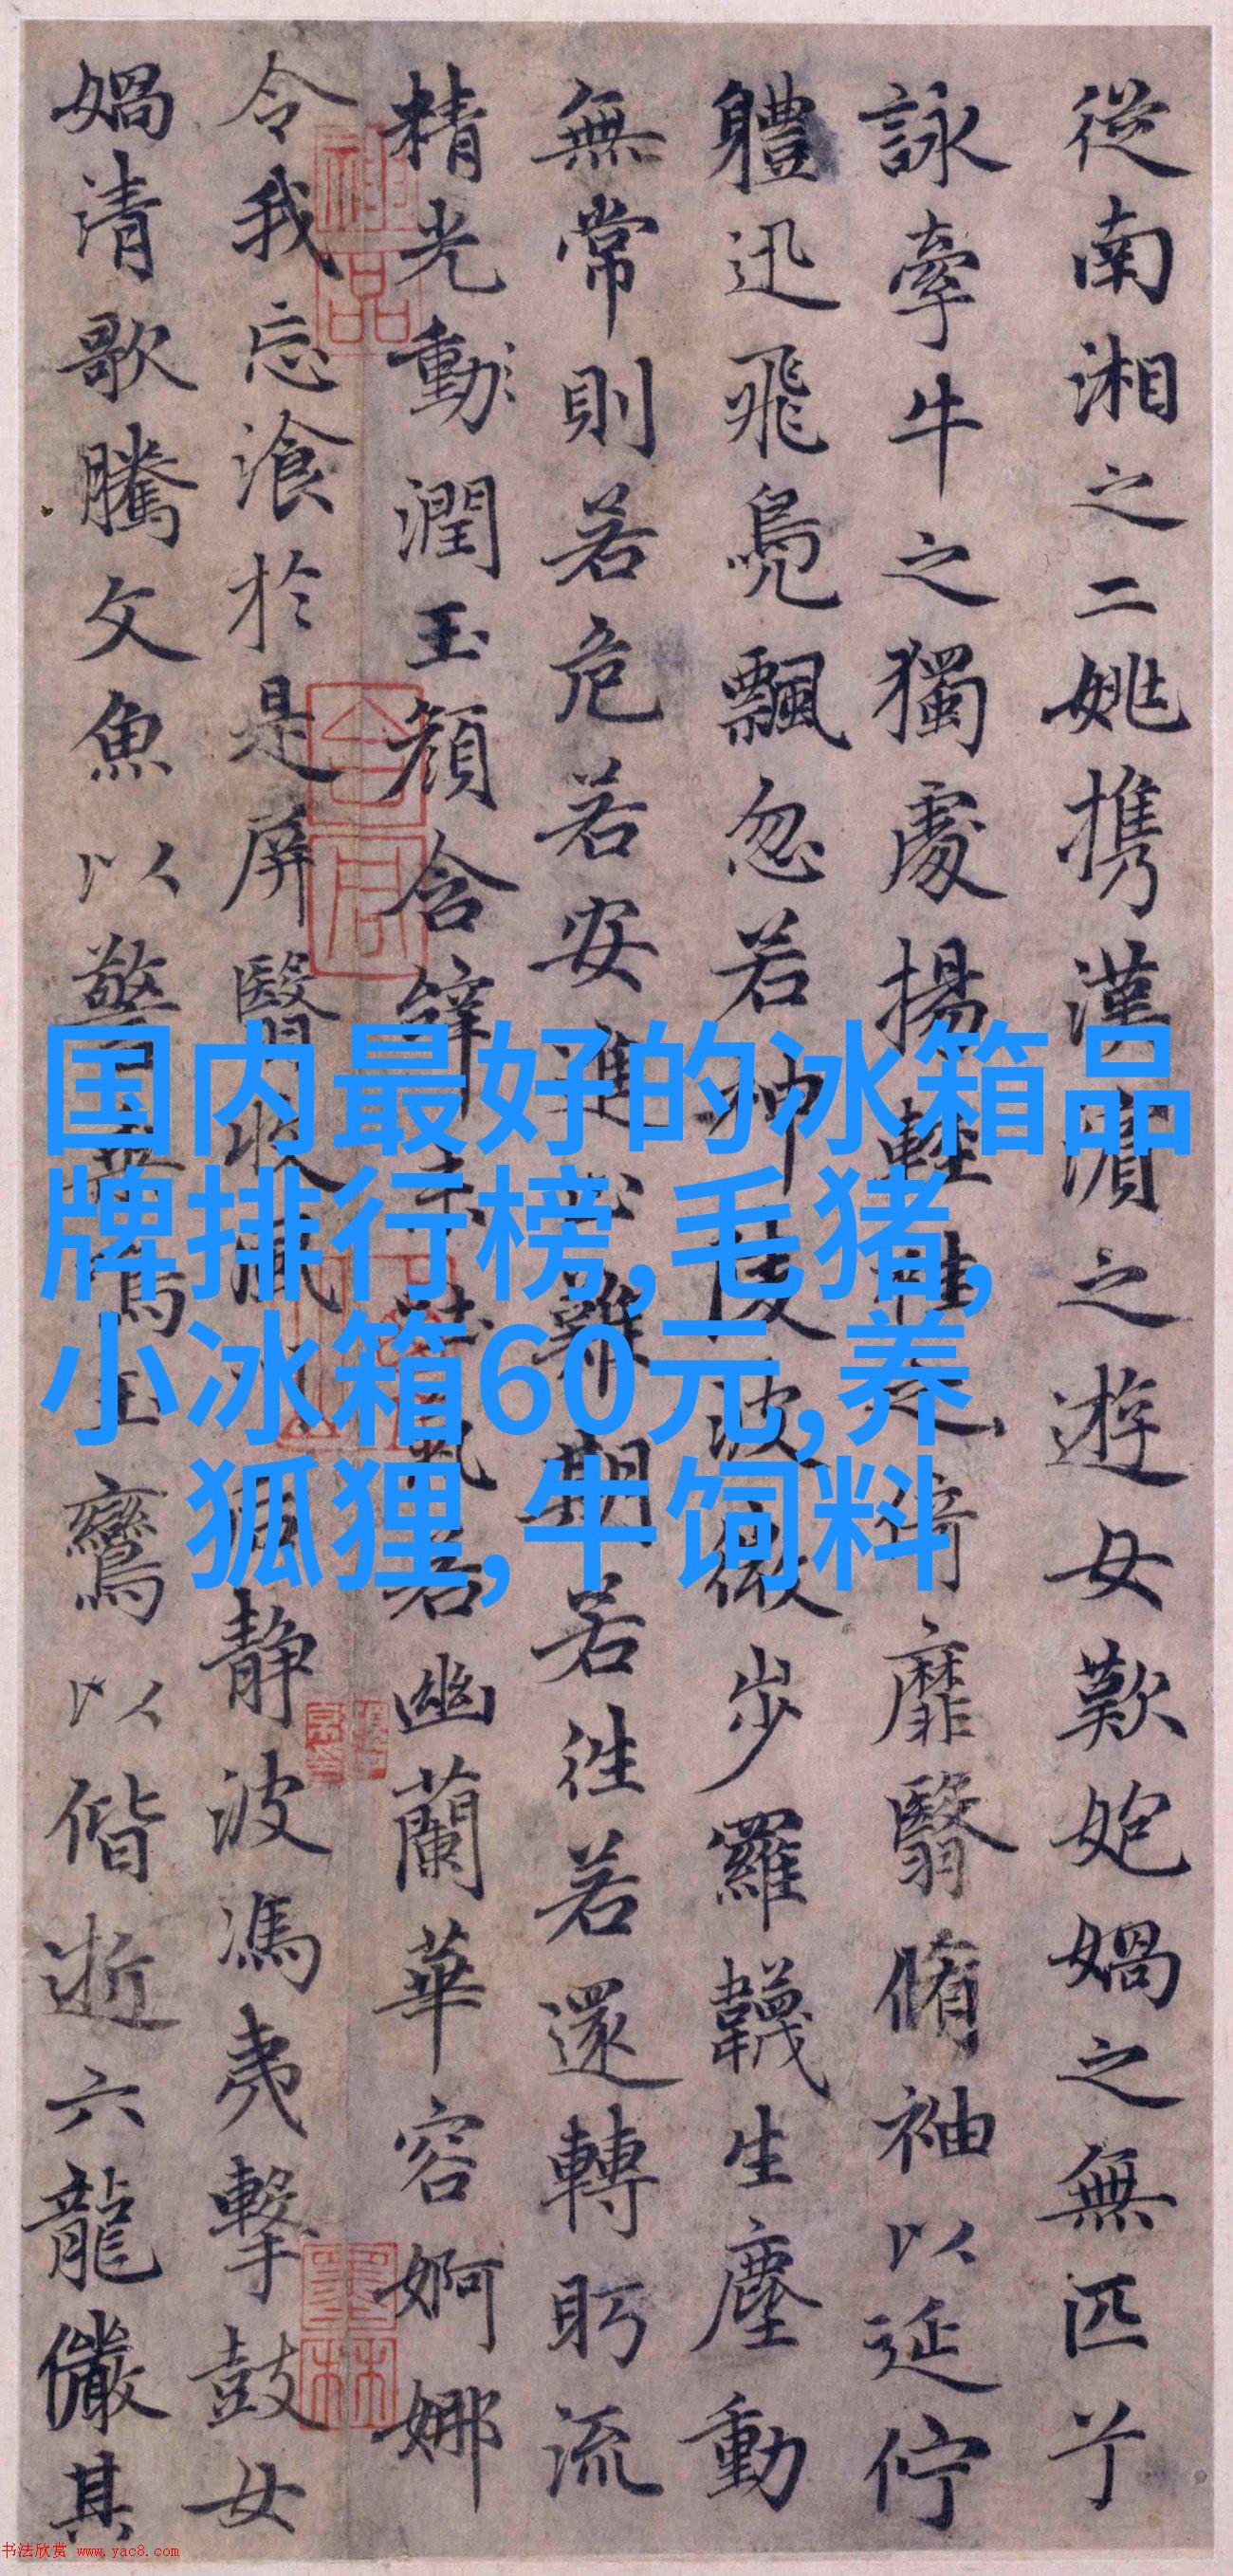 從南湘之二姚携漢濱之遊女歎匏媧之無匹兮
詠牽牛之獨處揚輕袿之猗靡翳脩袖以延佇
體迅飛鳧飄忽若神陵波微步羅韈生塵動
無常則若危若安進止難期若往若還轉眄流
精光動潤玉顏含辭未吐氣若幽蘭華容婀娜
令我忘飡於是屏翳收風川后靜波馮夷擊鼓女
媧清歌騰文魚以警乘鳴玉鸞以偕逝六龍儼其
国内最好的冰箱品
牌排行榜,毛猪,
小冰箱60元,养
狐狸,牛饲料
神品
墨林
书法欣赏 www.yac8.com